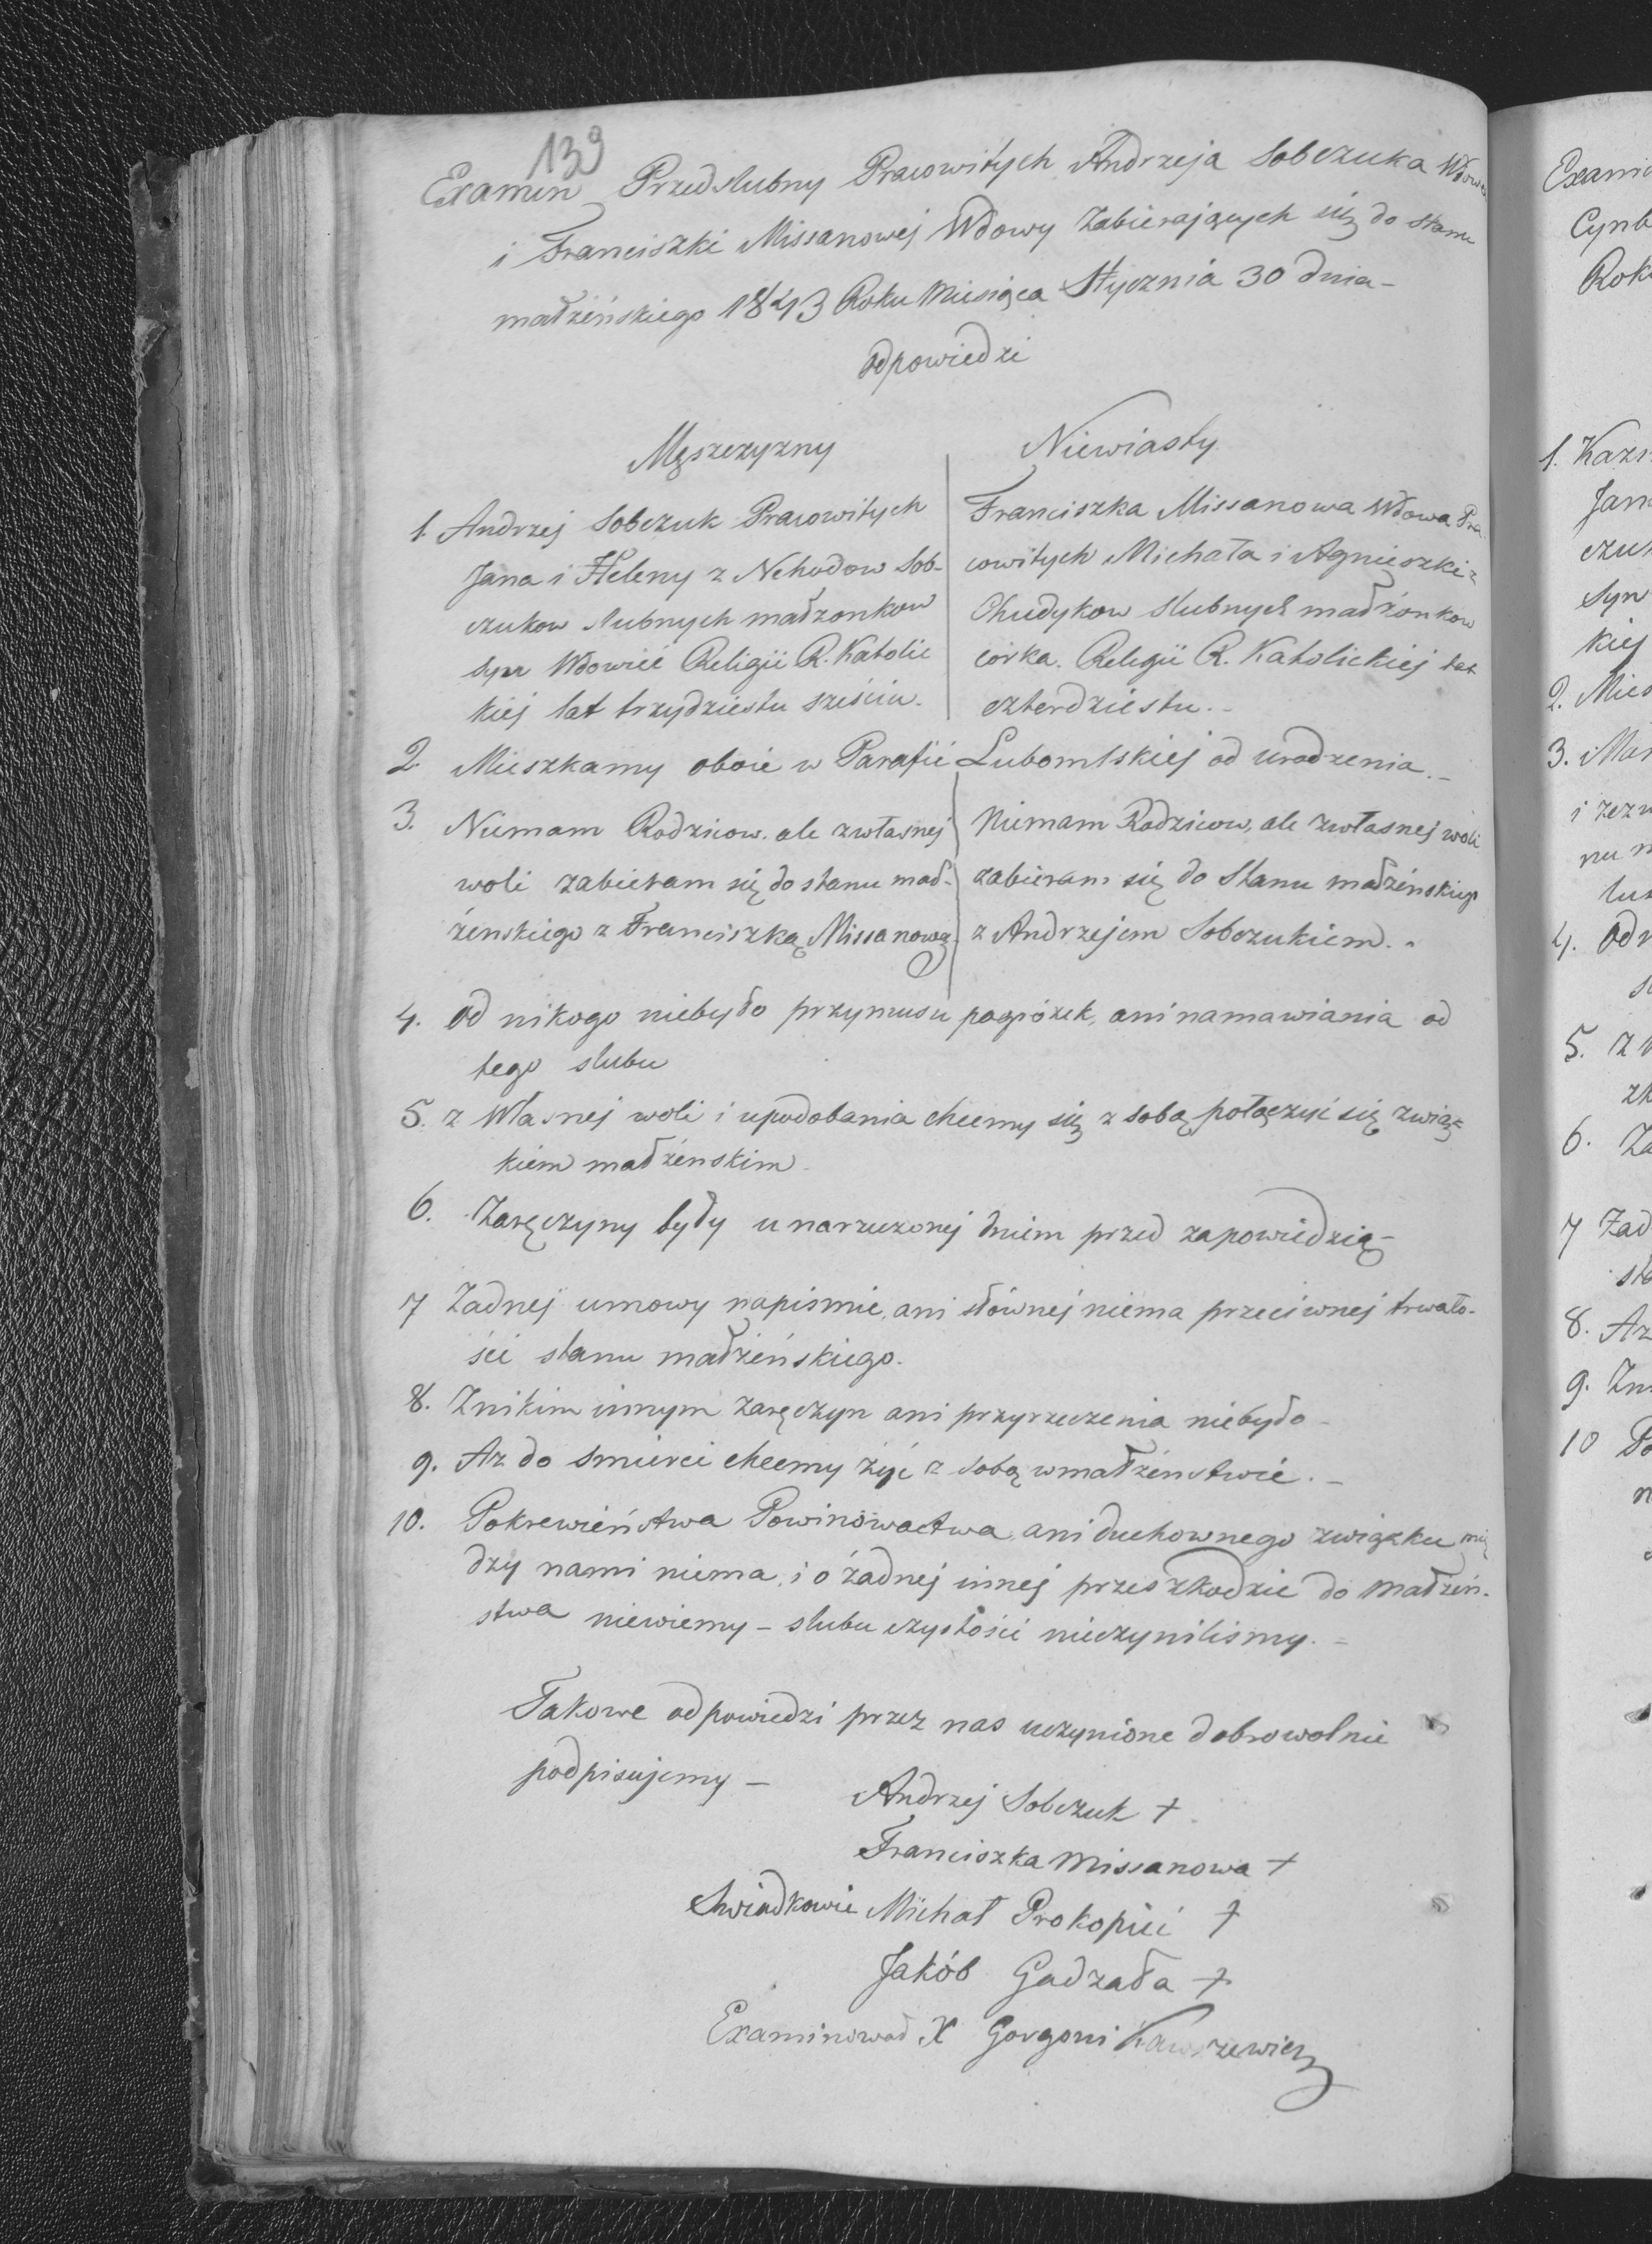 139
Examen Przedslubny Pracowitych Andrzeja Sobczuka Wdowca
i Franciszki Missanowej Wdowy Zabierających się do stanu
małżeńskiego 1843 Roku Miesiąca Stycznia 30 dnia -
odpowiedzi
Męszczyzny
1. Andrzej Sobczuk Pracowitych
Jana i Heleny z Nehodow Sob-
czukow slubnych małzonkow
syn Wdowiec Religii R. Katolic
kiej lat trzydziestu sześciu.
Niewiasty
Franciszka Missanowa Wdowa Pra-
cowitych Michała i Agnieszki z
Chudykow slubnych małżonkow
córka. Religii R. Katolickiej lat
czterdziestu. -
2. Mieszkamy oboie w Parafii Lubomlskiej od urodzenia. -
3. Niemam Rodzicow. ale zwłasnej
woli zabieram się do stanu mał-
żenskiego z Franciszką Missanową.
Niemam Rodzicow, ale zwłasnej woli
zabieram się do Stanu małżeńskiego
z Andrzejem Sobczukiem. -
4. Od nikogo niebyło przymusu pogróżek, ani namawiania od
tego slubu
5. z Własnej woli i upodobania chcemy się z sobą połączyć się związ-
kiem małżenskim -
6. Zaręczyny były u narzeczonej dniem przed zapowiedzią -
7 Żadnej umowy napismie, ani słównej niema przeciwnej trwało-
ści stanu małżeńskiego.
8. Znikim innym zaręczyn ani przyrzeczenia niebyło -
9. Az do smierci chcemy żyć z sobą wmałżeństwie. -
10. Pokrewieństwa Powinowactwa, ani duchownego związku mię
dzy nami niema, i o żadnej innej przeszkodzie do małżeń-
stwa niewiemy - slubu czystości nieczyniliśmy. =
Takowe odpowiedzi przez nas uczynione dobrowolnie
podpisujemy -
Andrzej Sobczuk +
Franciszka Missanowa +
Swiadkowie Michał Prokopiec +
Jakób Gadzała +
Examinował X Gorgoni
Exami
Cynb
Roku
1. Kazi
Jan
czuk
Syn
kiej
2. Mies
3.
i zezw
4. Od
5. z
6. Za
7 Żad
8. Az
9. Zni
10 Po